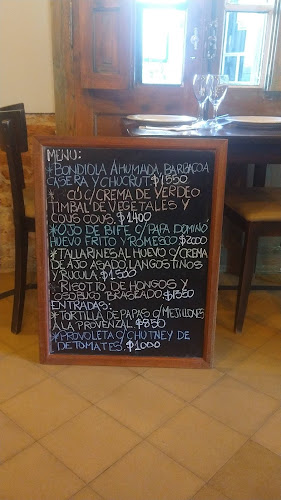 MENU:
*BONDIOLA AHUMADA, BARBACOA
CASERA Y CHUCRUT $1550
* CÚ C/CREMA DE VERDEO
TIMBAL DE VEGETALES Y
COUS COUS. $1400
*OJO DE BIFE C/ PAPA DOMINO
HUEVO FRITO Y ROMESCO $2000
*TALLARINES AL HUEVO C/CREMA
DE AJO ASADO LANGOSTINOS
Y RUCULA
*RISOTTO DE HONGOS Y
OSOBUCO BRASEADO $1350
ENTRADAS:
*TORTILLA DE PAPAS C/MEJILLONES
A LA PROVENZAL $850
*PROVOLETA C/CHUTNEY DE
DE TOMATES. $1000